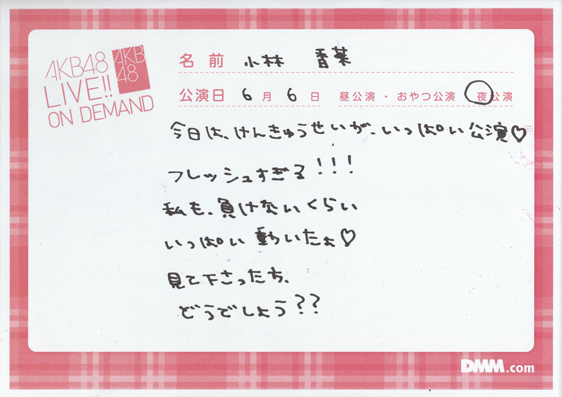 AKB48
LIVE!!
ON DEMAND
AKB
48
名前 小林 香菜
公演日 6月6日 昼公演・おやつ公演 夜公演
今日は、けんきゅうせいが、いっぱい公演♡
フレッシュすぎる!!!
私も、負けないくらい
いっぱい動いたょ♡
見て下さったち、
どうでしよう??
DMM.com